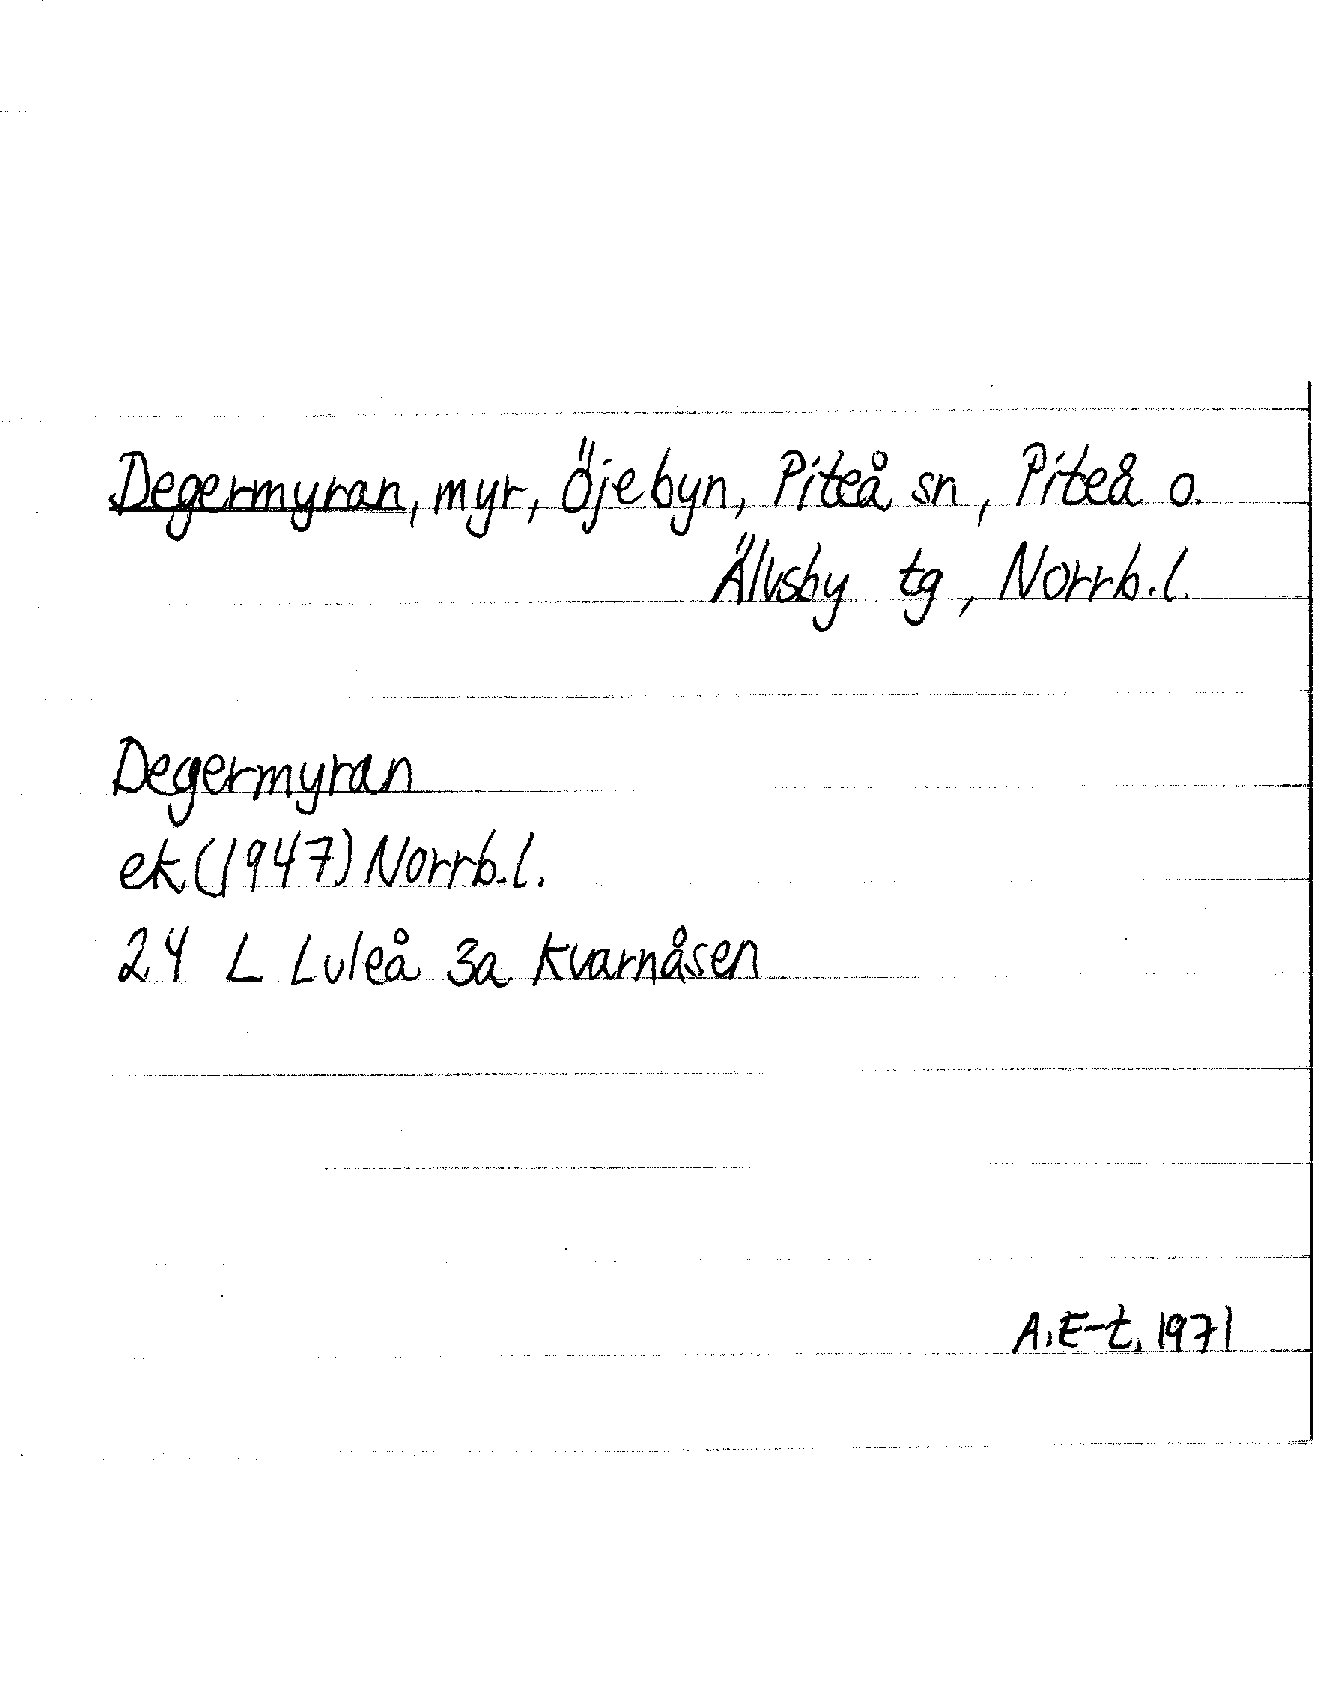 Degermyran, myr, Öjebyn, Piteå sn, Piteå o.
Älvsby tg, Norrb.l.
Degermyran
ek (1947) Norrb.l.
24 L Luleå 3a Kvarnåsen
A.E-t. 1971